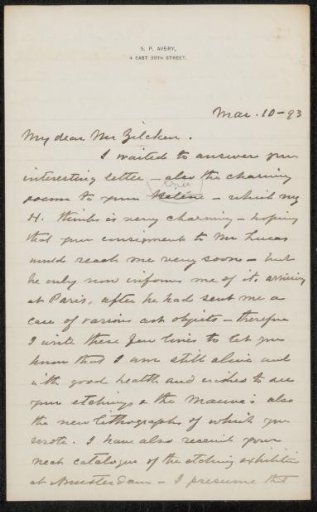 S. P. AVERY,
4 EAST 38TH STREET.
Mar. 10-93
My dear Mr Zilcken.
I waited to answer your
interesting letter - also the charming
poem to your Helène - which my
H. thinks is very charming - hoping
that your consignment to Mr Lucas
would reach me very soon - but
he only now informs me of its arriving
at Paris, after he had sent me a
case of various art objects - therefore
I write these few lines to let you
know that I am still alive and
with good health and wishes to see
your etchings & the Mauve: also
the new lithographs of which you
wrote. I have also received your
neat catalogue of the etching exhibition
at Amsterdam - I presume that